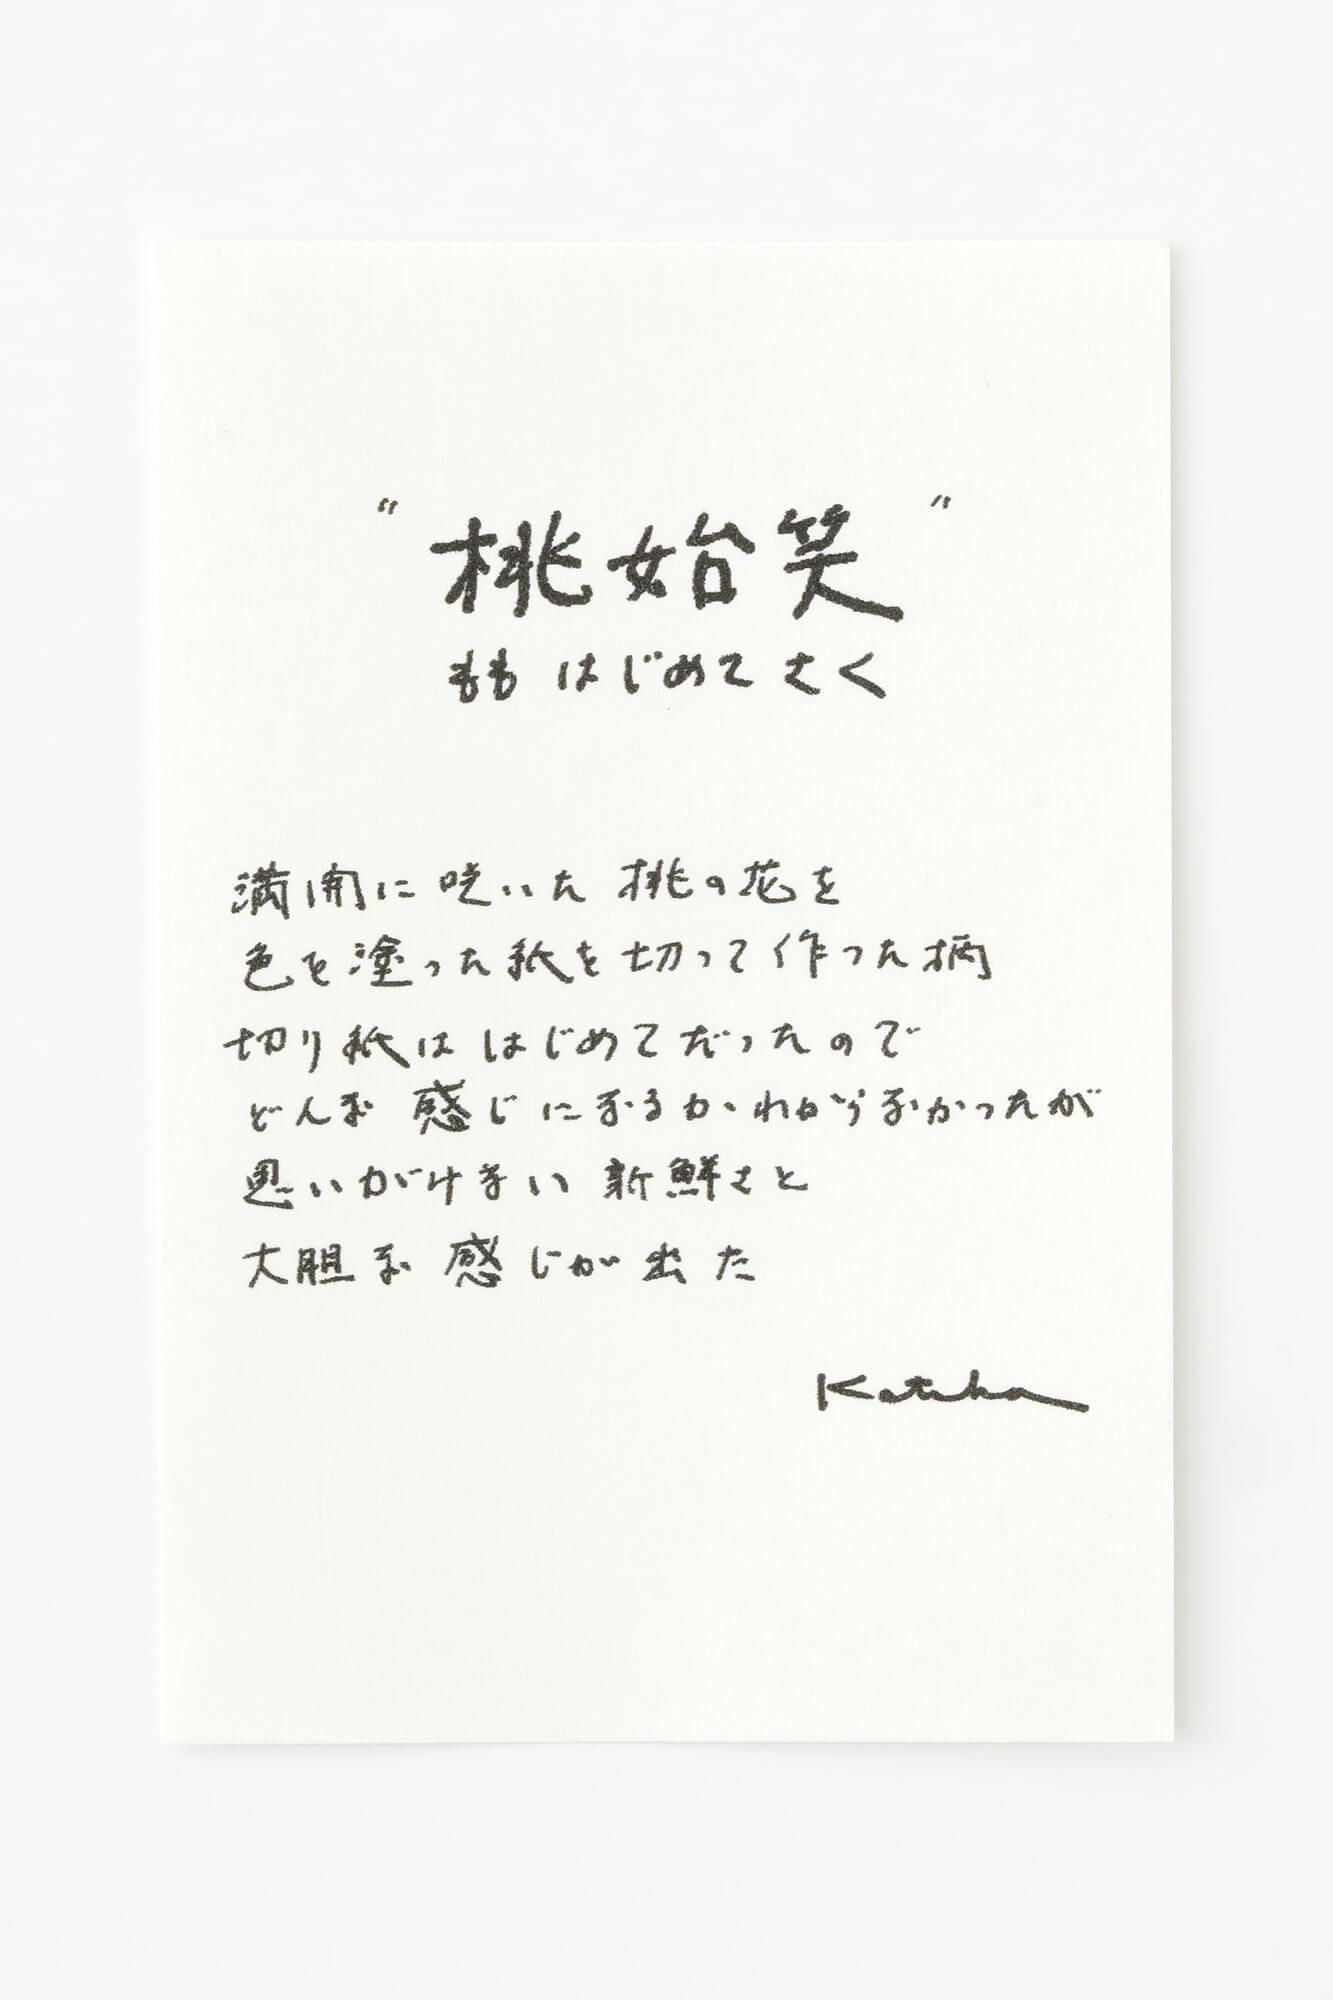 "桃始笑"
ももはじめてさく
満開に咲いた桃の花を
色を塗った紙を切って作った柄
切り紙ははじめてだったので
どんな感じになるかわからなかったが
思いがけない新鮮さと
大胆な感じが出た
Katsuka